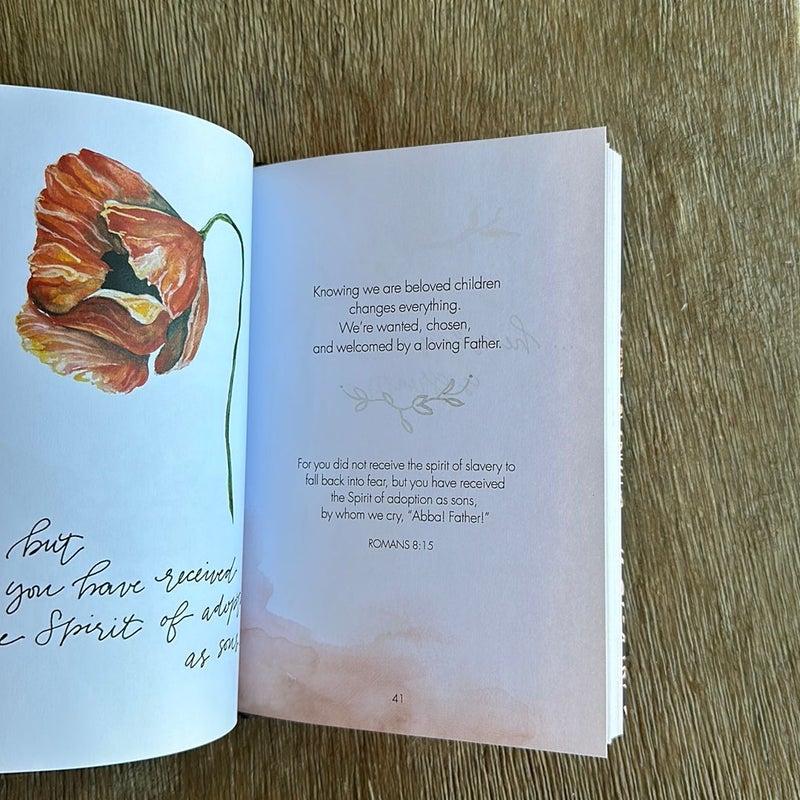 but
you have received
Spirit of
as
Knowing we are beloved children
changes everything.
We're wanted, chosen,
and welcomed by a loving Father.
For you did not receive the spirit of slavery to
fall back into fear, but you have received
the Spirit of adoption as sons,
by whom we cry, "Abba! Father!"
ROMANS 8:15
41